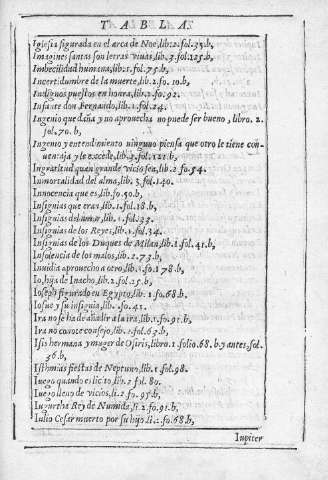 TABLAS
Iglesia figurada en el arca de Noe, lib. 2. fol. 35. b,
Imagines santas son letras viuas, lib. 3. fol. 125. b,
Imbecilidad humana, lib. 1. fol. 75. b,
Incertidumbre de la muerte, lib. 2. fo. 10. b,
Indignos puestos en honra, lib. 1. fo. 92.
Infante don Fernando, lib. 1. fol. 24.
Ingenio que daña y no aprouecha no puede ser bueno, libro. 2.
fol. 70. b,
Ingenio y entendimiento ninguno piensa que otro le tiene con
uentaja y le excede, lib. 3. fol. 121. b,
Ingratitud quan grande vicio sea, lib. 2. fo. 54.
Inmortalidad del alma, lib. 3. fol. 140.
Innocencia que es, lib. fo. 50. b,
Insignias que eran, lib. 1. fol. 18. b,
Insignias del amor, lib. 1. fol. 33.
Insignias de los Reyes, lib. 1. fol. 34.
Insignias de los Duques de Milan, lib. 1 fol. 41. b,
Insolencia de los malos, lib. 2. 73. b,
Inuidia aprouecho a otro, lib. 1. fo. 178. b,
Io, hija de Inacho, lib. 2. fol. 25. b,
Ioseph figurado en Egypto, lib. 1. fo. 68. b,
Iosue y su insignia, lib. fo. 41.
Ira no se ha de añadir a la ira, lib. 1. fo. 91. b,
Ira no consiente consejo, lib. 2. fol. 63. b,
Isis hermana y muger de Osiris, libro. 1 folio. 68. b y antes, fol.
36. b,
Isthmias fiestas de Neptuno, lib. 1 fol. 98.
Iuego quando es licito, li. 2 fol. 80.
Iuego lleno de vicios, li. 2. fo. 95. b,
Iugurtha Rey de Numida, li. 2. fo. 91. b,
Iulio Cesar muerto por su hijo, li. 2. fo. 68. b,
Iupiter